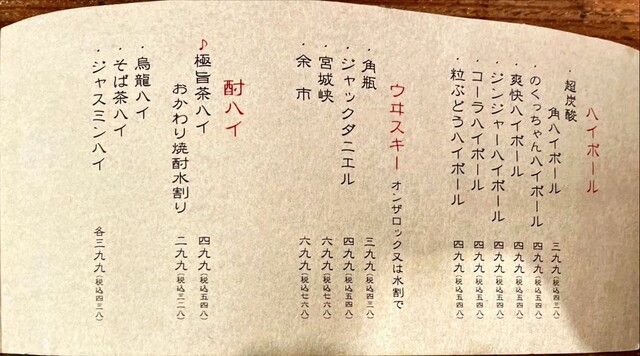 ハイボール
・超炭酸
角ハイボール 三九九（税込四三八）
・のくっちゃんハイボール 四九九（税込五四八）
・爽快ハイボール 四九九（税込五四八）
・ジンジャーハイボール 四九九（税込五四八）
・コーラハイボール 四九九（税込五四八）
・粒ぶどうハイボール 四九九（税込五四八）
ウヰスキー オンザロック又は水割で
・角瓶 三九九（税込四三八）
・ジャックダニエル 四九九（税込五四八）
・宮城峡 六九九（税込七六八）
・余市 六九九（税込七六八）
酎ハイ
♪極旨茶ハイ 四九九（税込五四八）
おかわり焼酎水割り 二九九（税込三二八）
・烏龍ハイ
・そば茶ハイ
・ジャスミンハイ 各三九九（税込四三八）